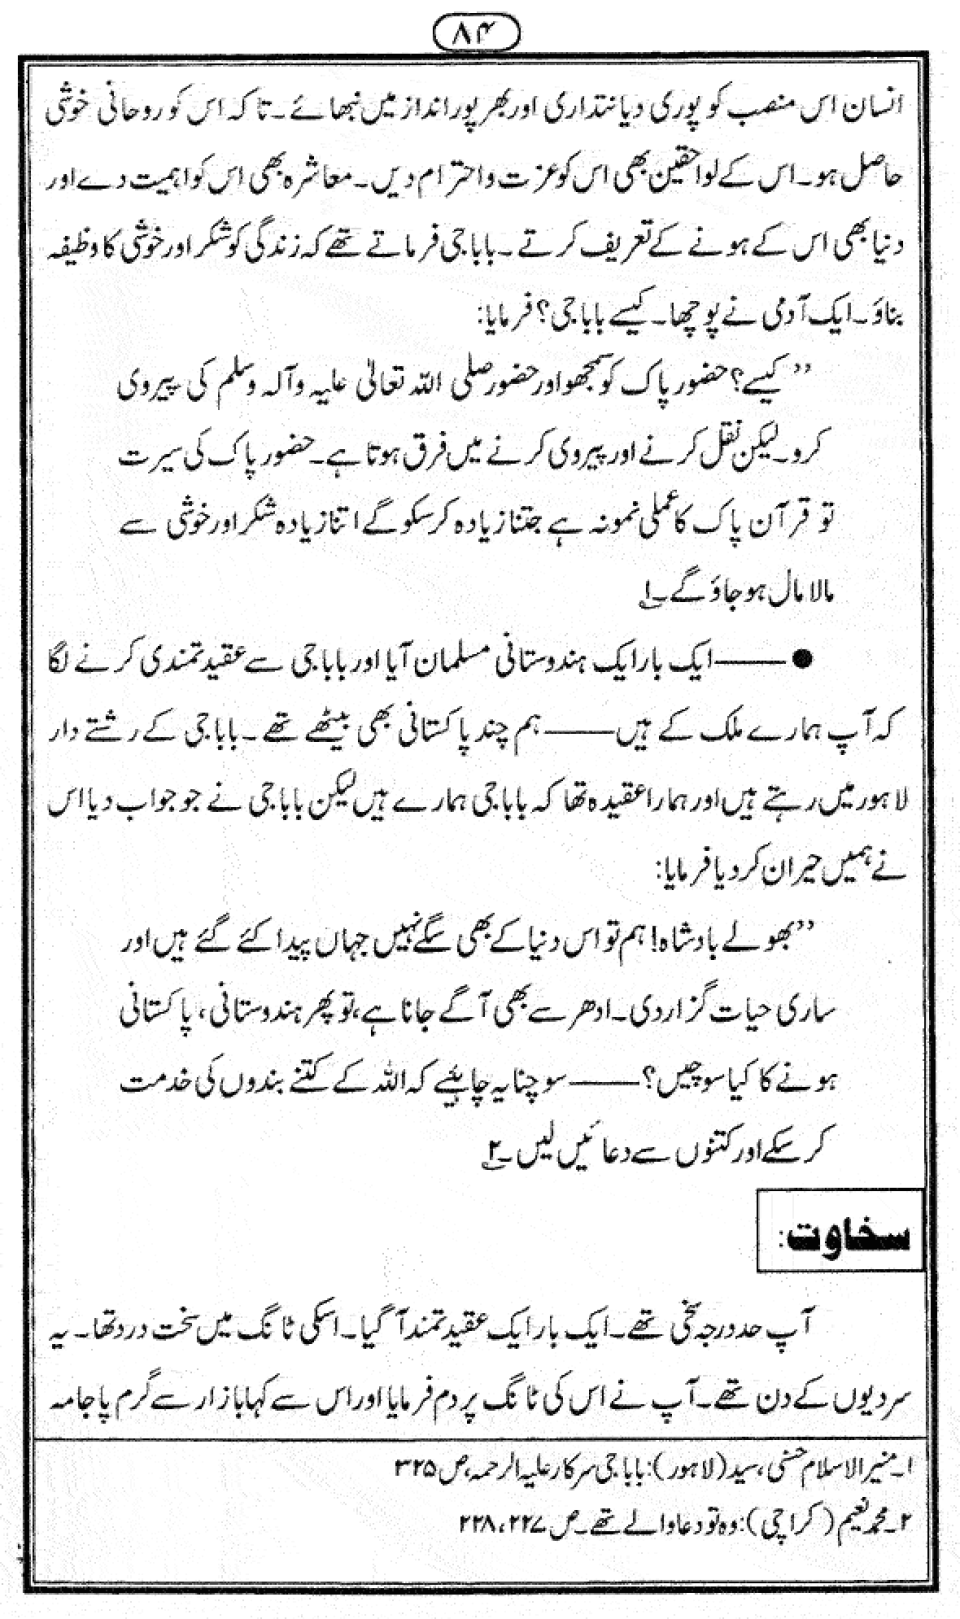 ۸۴
انسان اس منصب کو پوری دیانتداری اور بھرپور انداز میں نبھائے۔ تاکہ اس کو روحانی خوشی
حاصل ہو۔ اس کے لواحقین بھی اس کو عزت و احترام دیں۔ معاشرہ بھی اس کو اہمیت دے اور
دنیا بھی اس کے ہونے کے تعریف کرتے۔ باباجی فرماتے تھے کہ زندگی کو شکر اور خوشی کا وظیفہ
بناؤ۔ ایک آدمی نے پوچھا۔ کیسے باباجی؟ فرمایا:
”کیسے؟ حضور پاک کو سمجھو اور حضور صلی اللہ تعالیٰ علیہ وآلہ وسلم کی پیروی
کرو۔ لیکن نقل کرنے اور پیروی کرنے میں فرق ہوتا ہے۔ حضور پاک کی سیرت
تو قرآن پاک کا عملی نمونہ ہے جتنا زیادہ کر سکو گے اتنا زیادہ شکر اور خوشی سے
مالا مال ہو جاؤ گے۔۱
●——ایک بار ایک ہندوستانی مسلمان آیا اور باباجی سے عقیدتمندی کرنے لگا
کہ آپ ہمارے ملک کے ہیں—— ہم چند پاکستانی بھی بیٹھے تھے۔ باباجی کے رشتے دار
لاہور میں رہتے ہیں اور ہمارا عقیدہ تھا کہ باباجی ہمارے ہیں لیکن باباجی نے جو جواب دیا اس
نے ہمیں حیران کر دیا فرمایا:
”بھولے بادشاہ! ہم تو اس دنیا کے بھی سگے نہیں جہاں پیدا کئے گئے ہیں اور
ساری حیات گزار دی۔ ادھر سے بھی آگے جانا ہے، تو پھر ہندوستانی، پاکستانی
ہونے کا کیا سوچیں؟—— سوچنا یہ چاہئیے کہ اللہ کے کتنے بندوں کی خدمت
کر سکے اور کتنوں سے دعائیں لیں۔۲
سخاوت:
آپ حد درجہ سخی تھے۔ ایک بار ایک عقیدتمند آ گیا۔ اسکی ٹانگ میں سخت درد تھا۔ یہ
سردیوں کے دن تھے۔ آپ نے اس کی ٹانگ پر دم فرمایا اور اس سے کہا بازار سے گرم پاجامہ
۱۔ منیر الاسلام حسنی، سید (لاہور): باباجی سرکار علیہ الرحمہ، ص ۳۲۵
۲۔ محمد نعیم (کراچی): وہ تو دعا والے تھے۔ ص ۲۲۷، ۲۲۸